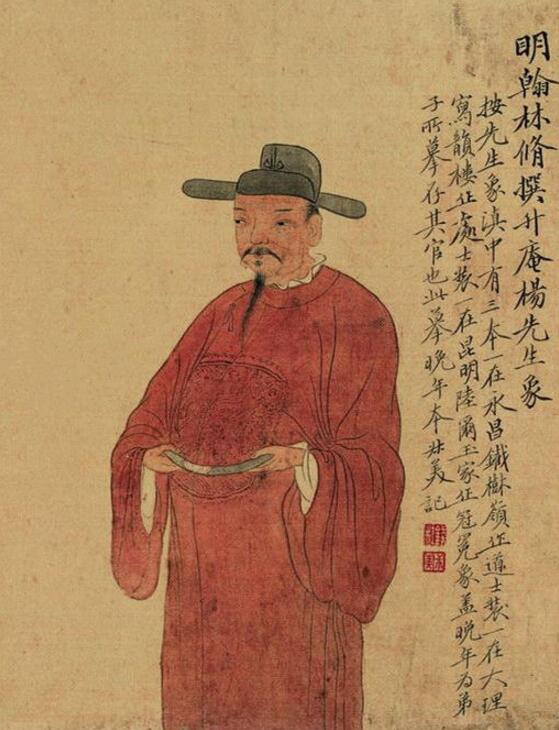 明翰林脩撰升庵楊先生象
按先生象滇中有三本一在永昌鐵樹嶺作道士裝一在大理
寫韻樓作處士裝一在昆明陸爾玉家作冠冕象蓋晚年為弟
子所摹存其官也此摹晚年本
記